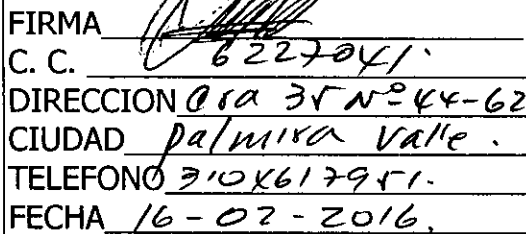 FIRMA
C. C. 6227041.
DIRECCION Cra 35 Nº 44-62
CIUDAD palmira valle.
TELEFONO 3104617951.
FECHA 16-02-2016.